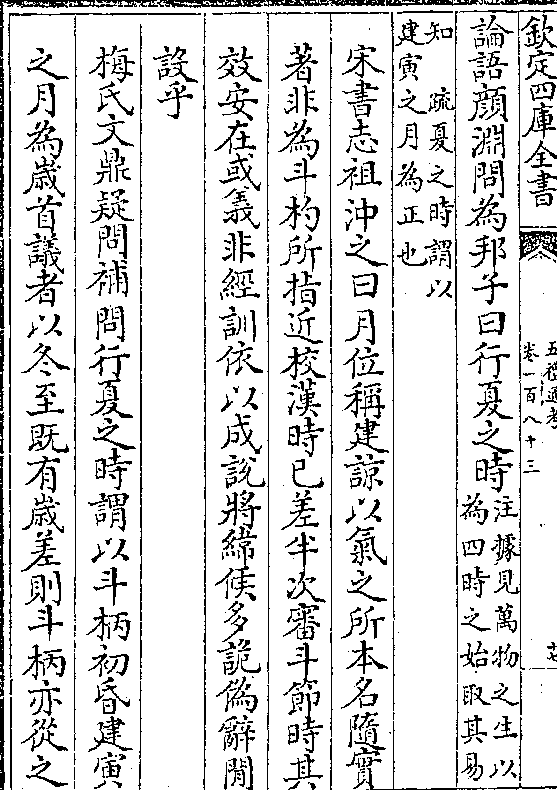 欽定四庫全書
五禮通考
卷一百八十三
論語顔淵問為邦子曰行夏之時
注據見萬物之生以
為四時之始取其易
知 疏夏之時謂以
建寅之月為正也
宋書志祖沖之曰月位稱建諒以氣之所本名隨實
著非為斗杓所指近校漢時已差半次審斗節時其
效安在或義非經訓依以成說將緯候多詭偽辭間
設乎
梅氏文鼎疑問補問行夏之時謂以斗柄初昏建寅
之月為歲首議者以冬至既有歲差則斗柄亦從之